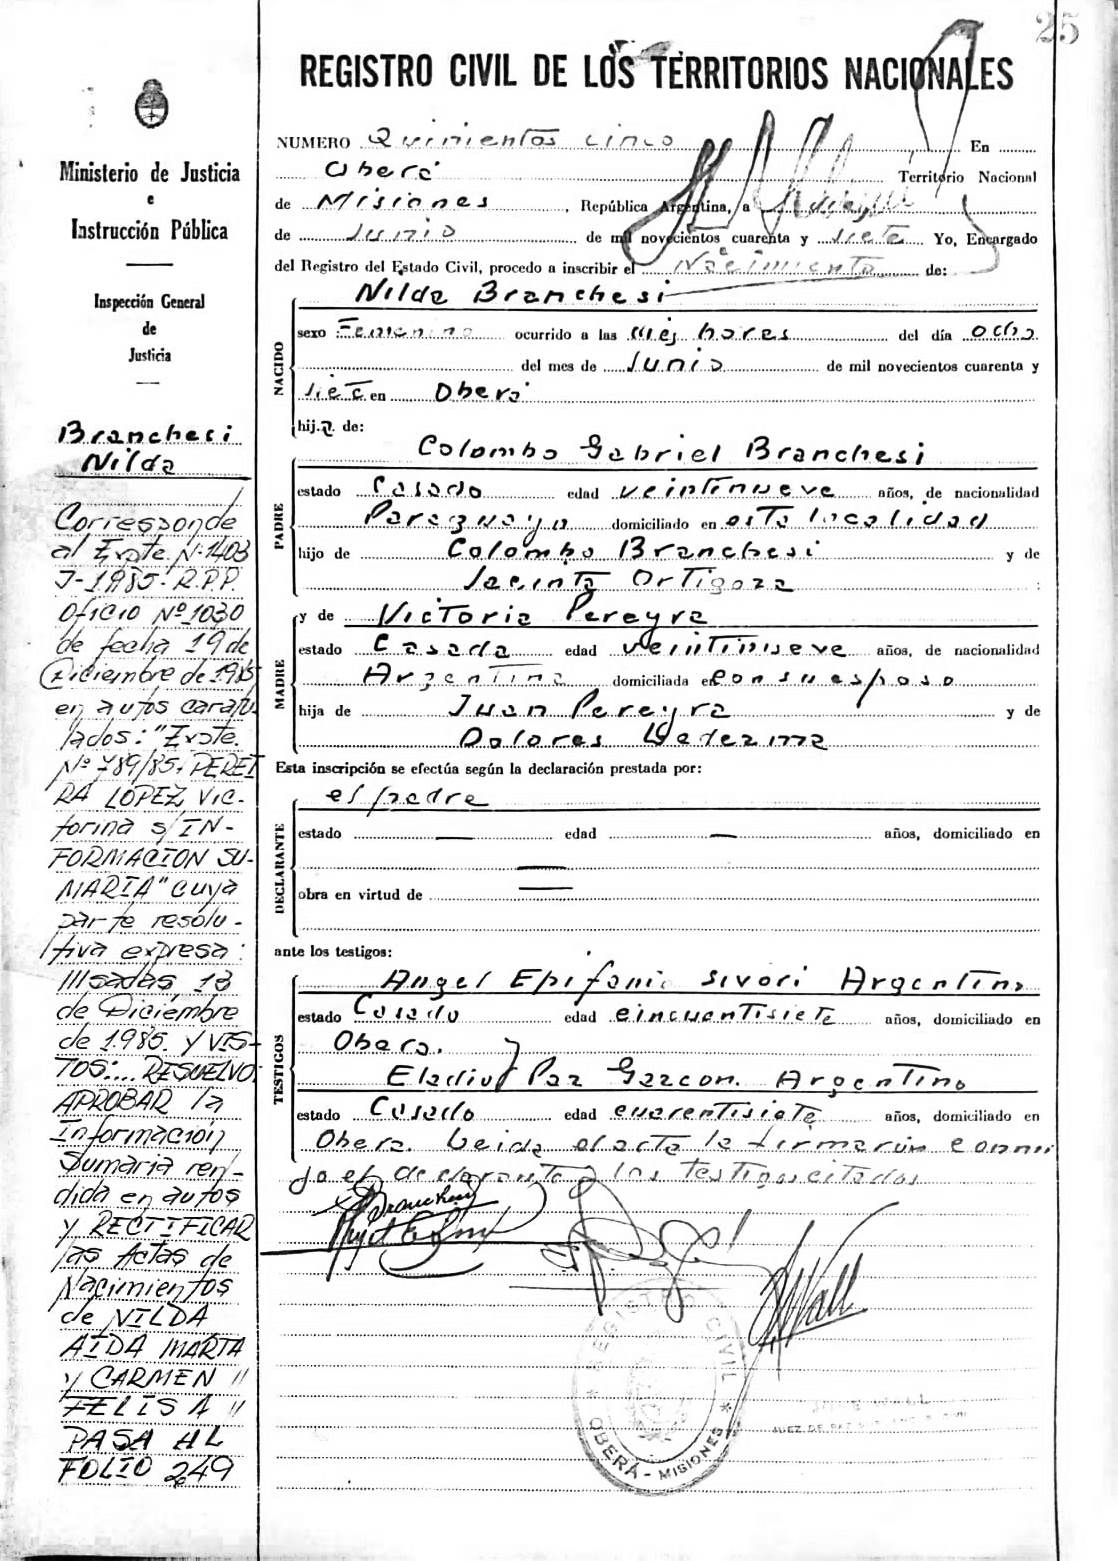 25
REGISTRO CIVIL DE LOS TERRITORIOS NACIONALES
Ministerio de Justicia
e
Instrucción Pública
Inspección General
de
Justicia
NUMERO Quinientos cinco En
Oberá Territorio Nacional
de Misiones, República Argentina, a
de Junio de mil novecientos cuarenta y siete Yo, Encargado
del Registro del Estado Civil, procedo a inscribir el Nacimiento de:
NACIDO
Nilda Branchesi
sexo Femenino ocurrido a las diez horas del día ocho
del mes de Junio de mil novecientos cuarenta y
siete en Oberá
hija de:
PADRE
Colombo Gabriel Branchesi
estado Casado edad veintinueve años, de nacionalidad
Paraguaya domiciliado en esta localidad
hijo de Colombo Branchesi y de
Jacinta Ortigoza
MADRE
y de Victoria Pereyra
estado Casada edad veintinueve años, de nacionalidad
Argentina domiciliada con su esposo
hija de Juan Pereyra y de
Dolores Ledezma
Esta inscripción se efectúa según la declaración prestada por:
DECLARANTE
el padre
estado — edad — años, domiciliado en
—
obra en virtud de —
ante los testigos:
TESTIGOS
Angel Epifanio Sivori Argentino
estado Casado edad cincuentisiete años, domiciliado en
Oberá.
Eladio Paz Garzon. Argentino
estado Casado edad cuarentisiete años, domiciliado en
Oberá. Leida el acta la firmaron conmi
go el declarante y los testigos citados
Branchesi
REGISTRO CIVIL
OBERÁ - MISIONES
JUEZ DE PAZ
Branchesi
Nilda
Corresponde
al Expte. Nº 1403
J-1985- R.P.P.
Oficio Nº 1030
de fecha 19 de
Diciembre de 1985
en autos caratu-
lados: "Expte.
Nº 789/85. PEREI
RA LOPEZ, Vic-
torina s/IN-
FORMACION SU-
MARIA" cuya
parte resolu-
tiva expresa:
///sadas 13
de Diciembre
de 1985. y VIS-
TOS:... RESUELVO:
APROBAR la
Información
Sumaria ren-
dida en autos
y RECTIFICAR
las Actas de
Nacimientos
de NILDA
AIDA MARTA
y CARMEN //
FELISA //
PASA AL
FOLIO 249